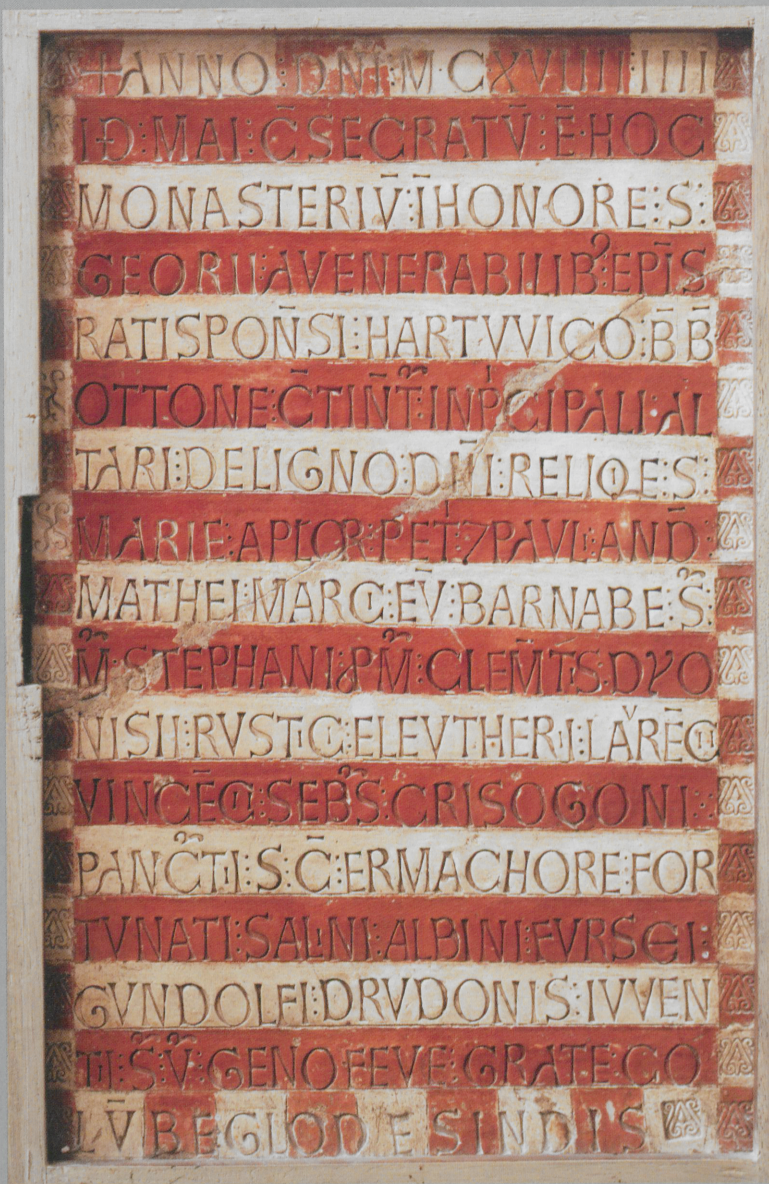 +ANNO : DN̄I : M · CXVIIII : IIII
IĐ : MAI : C̄SECRATV̄ : Ē · HOC
MONASTERIV̄ : ĪHONORE : S :
GEORII : AVENERABILIB' : EPĪS
RATISPON̄SI : HARTVVICO : B̄B̄
OTTONE : C̄TIN̄T : INPCIPALI : AL
TARI : DELIGNO : DN̄I : RELIQE : S :
MARIE : APLOR : PET : 7PAVLI : AND̄
MATHEI : MARCI : EV̄ : BARNABE : S̄ :
M̄ : STEPHANI : PM̄ : CLEM̄TIS : DYO
NISII : RVSTICI : ELEVTHERII : LAR̄ĒCII
VINCĒCII : SEBS̄ : CRISOGONI :
PANC̄TI : S : C̄ : ERMACHORE : FOR
TVNATI : SALINI : ALBINI : FVRSEI :
GVNDOLFI : DRVDONIS : IVVEN
TI : S̄ : V̄ : GENOFEVE : GRATE : CO
LV̄BE GLODESINDIS